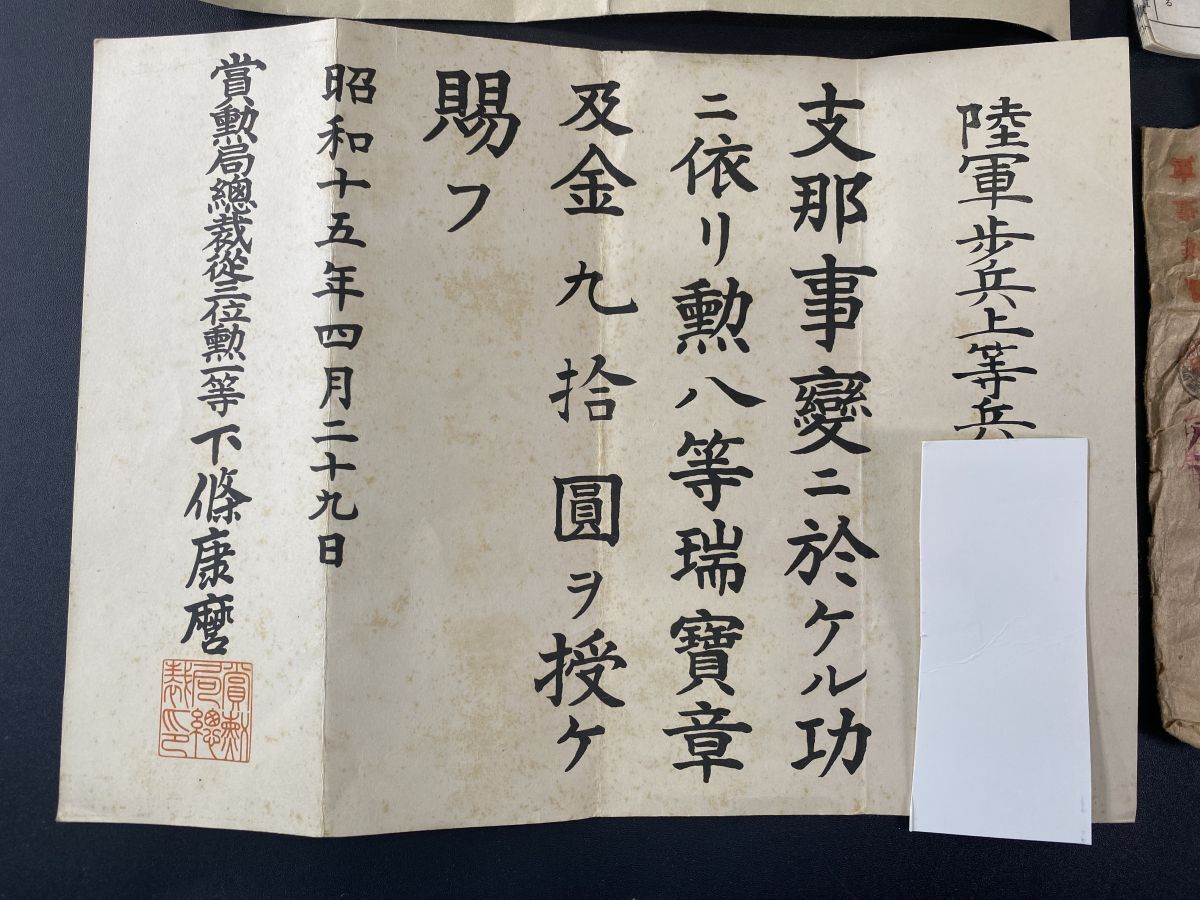 陸軍歩兵上等兵
支那事變ニ於ケル功
ニ依リ勲八等瑞寶章
及金九拾圓ヲ授ケ
賜フ
昭和十五年四月二十九日
賞勲局總裁從三位勲一等下條康麿
賞勲
局總
裁印